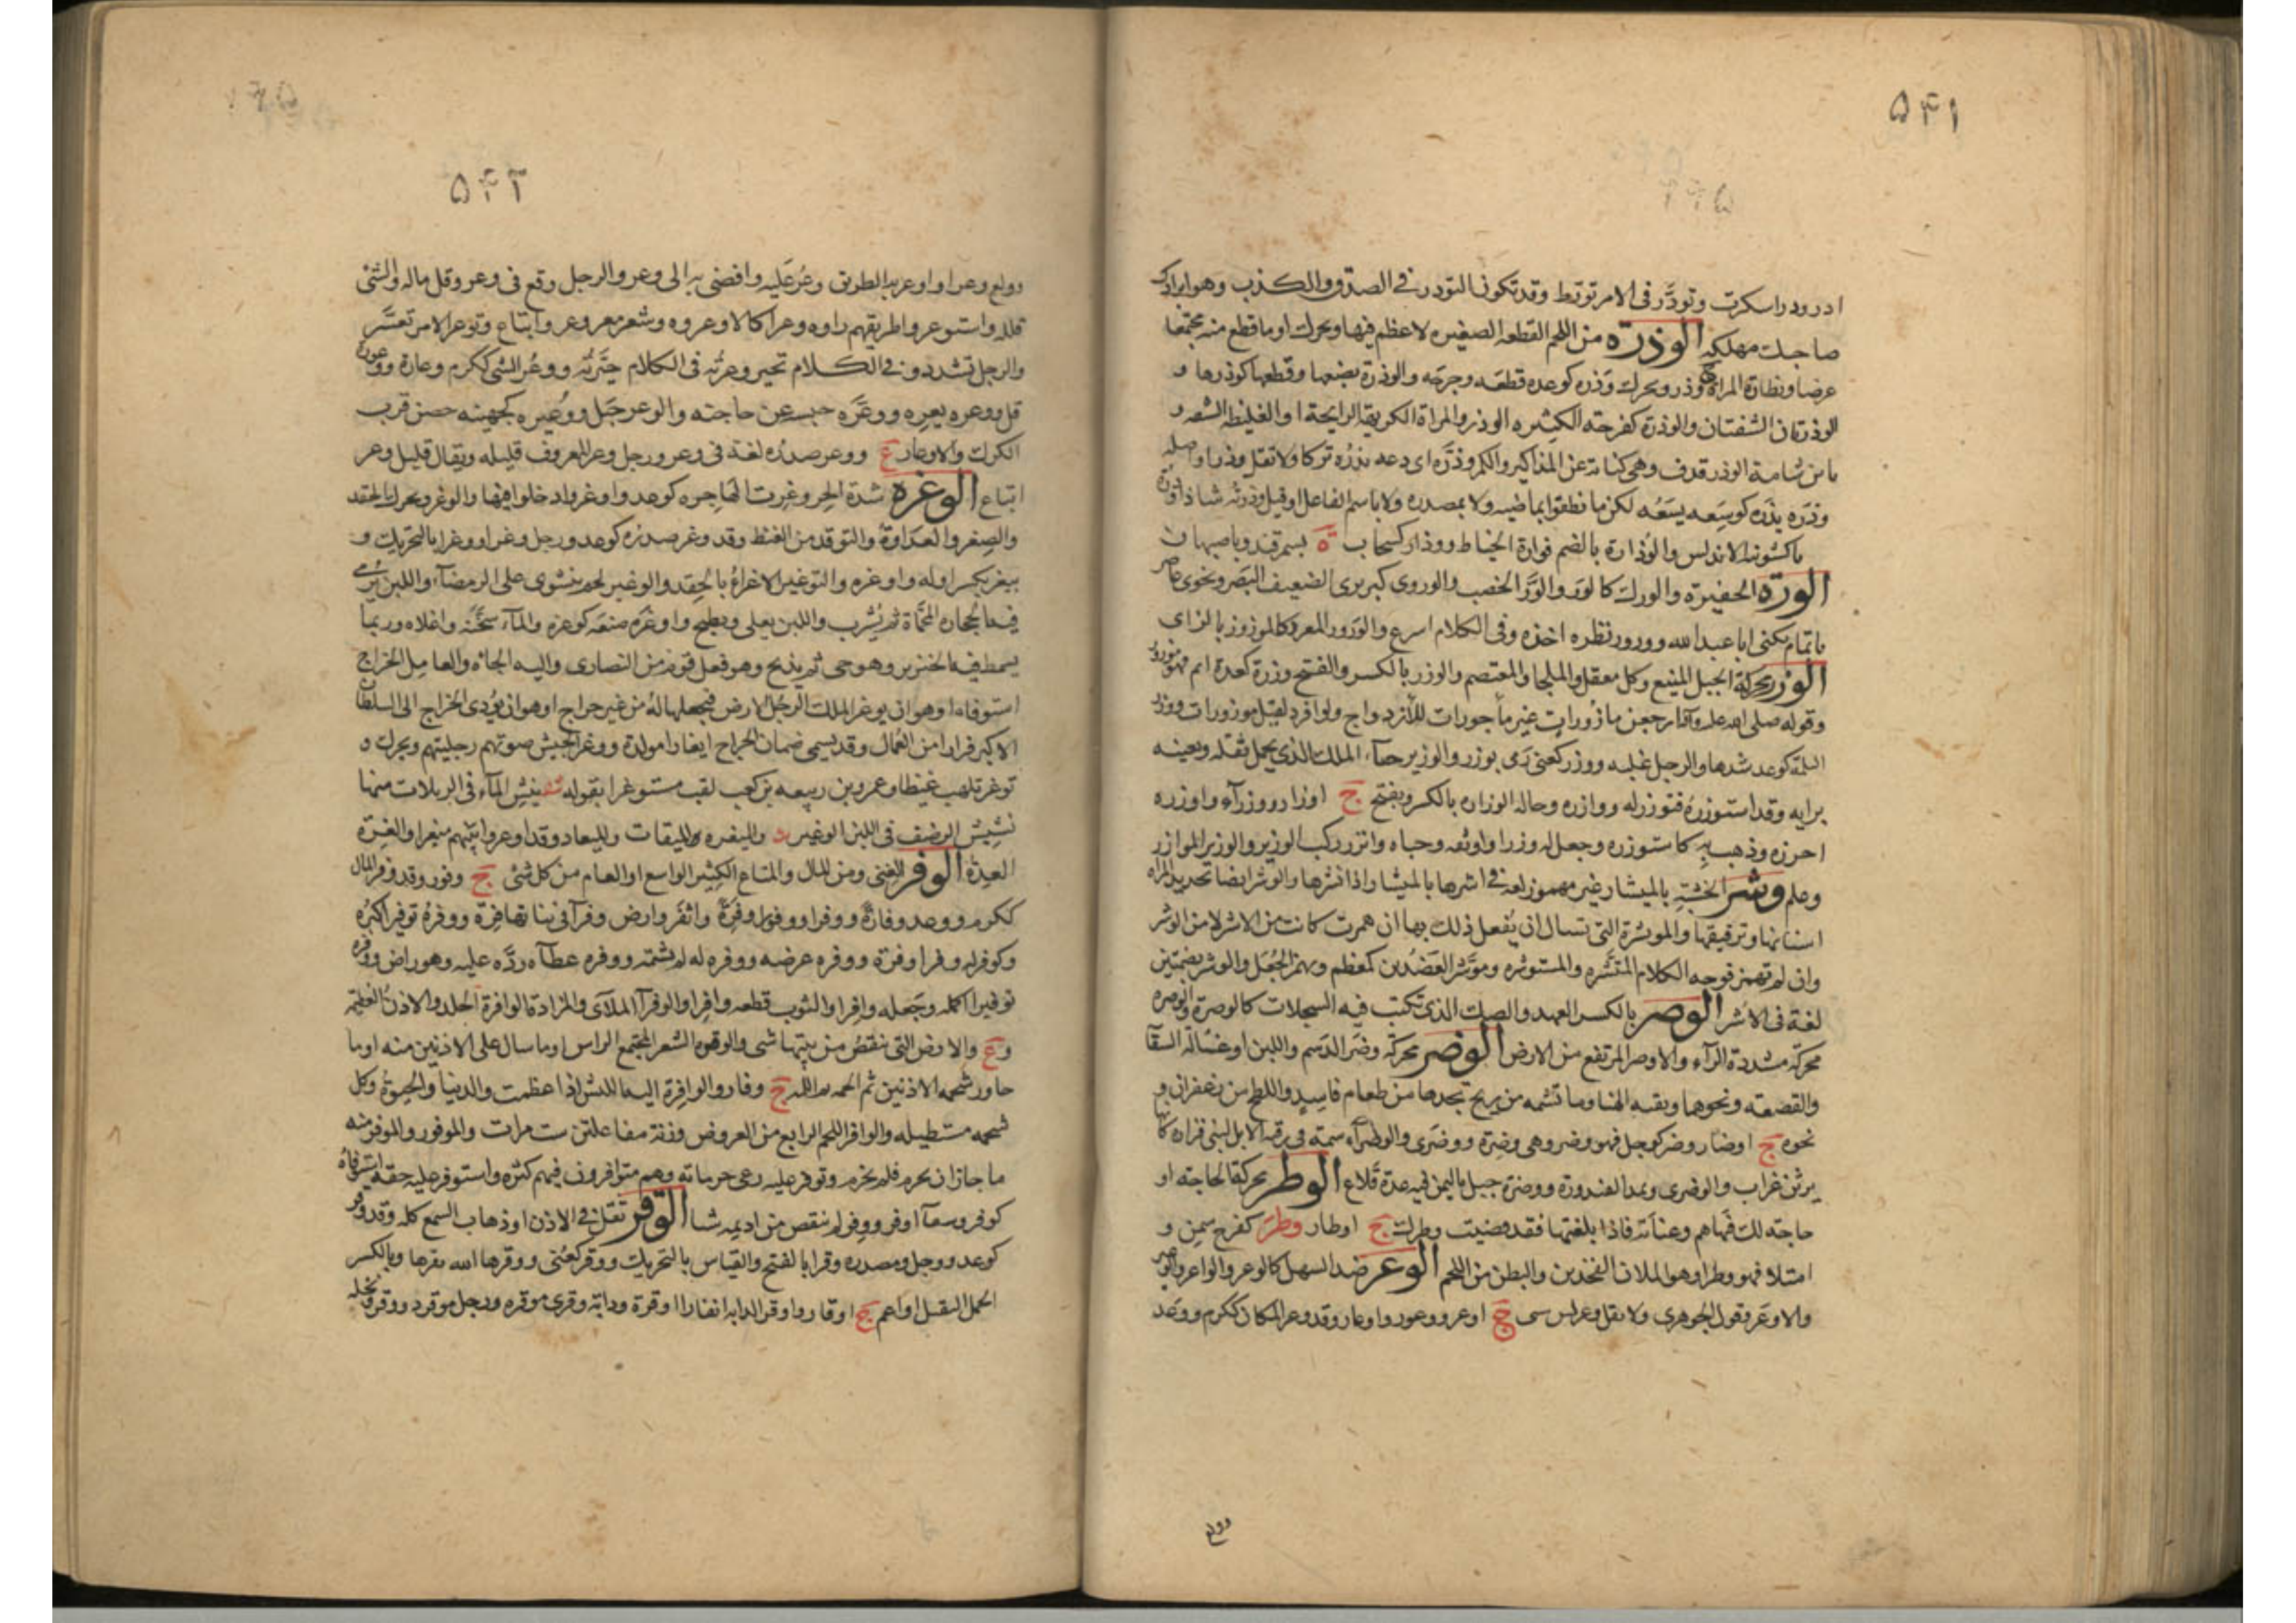 ۵۴۱
ادرود راسكرت وتودّر فى الامر تورّط وقد تكون التودر فى الصدق والكذب وهو ايرادك
صاحبك مهلكه الوذرة من اللحم القطعه الصغيره لا عظم فيها ويحرك او ما قطع منه مجتمعا
عرضا وبظارة المراة وذر ويحرك وذره كوعده قطعه وجرحه والوذرة بضعها وقطعها كوذرها و
الوذرتان الشفتان والوذرة كفرحه الكثيره الوذر والمراة الكريهة الرايحة او الغليظه الشفه و
يا بن شامة الوذر قذف وهى كناية عن المذاكير والكمر وذره اى دعه يذره تركا ولا تقل وذرا واصله
وذره يذره كوسعه يسعه لكن ما نطقوا بماضيه ولا بمصدره ولا باسم الفاعل او قيل وذرته شاذا وذرة
باكشونية الاندلس والوذارة بالضم قوارة الخياط ووذار كسحاب ة بسمرقند وباصبهان
الورّه الحفيرة والورك كالور والورّ الخصب والوروى كبربرى الضعيف البصر ونحوى عاصر
ابا تمام يكنى ابا عبد الله وورور نظره احده وفى الكلام اسرع والورور المغرر كالموزوز بالزاى
الوزر محركة الجبل المنيع وكل معقل والملجا والمعتصم والوزر بالكسر والفتح وزرة كعدة اثم فهو موزور
وقوله صلى الله عليه وآله ارجعن مازورات غير ماجورات للازدواج ولو افرد لقيل موزورات ووزر
الثلمة كوعد شدها والرجل غلبه ووزر كعنى رمى بوزر والوزير حباء الملك الذى يحمل ثقله ويعينه
برايه وقد استوزره فتوزر له ووازره وحاله الوزاره بالكسر ويفتح ج اوزار ووزراء واوزره
احرزه وذهب به كاستوزره وجعل له وزرا واوثقه وخباه واتزر ركب الوزير والوزير الموازر
وعلم وشر الخشبة بالميشار غير مهموز لغة فى اشرها بالميشار اذا نشرها والوشر ايضا تحديد المراة
اسنانها وترقيقها والموتشرة التى تسال ان يفعل ذلك بها ان همزت كانت من الاشر لا من الوشر
وان لم تهمز فوجه الكلام المتشره والمستوشره وموشر العضدين كمعظم ويهمز الجعل والوشر بضمتين
لغة فى الاشر الوصر بالكسر العهد والصك الذى تكتب فيه السجلات كالوصرة والوصره
محركة مشددة الراء والاوصر المرتفع من الارض الوضر محركة وضر الدسم واللبن او غسالة السقا
والقصعة ونحوهما وبقيه الهنا وما تشمه من ريح تجدها من طعام فاسد واللطخ من زعفران و
نحوه ج اوضار وضر كوجل فهو وضر وهى وضرة ووضرى والوضراء سمة فى رقبة الابل لبنى فزارة كانها
برثن غراب والوضرى ويمد الفندورة ووضرة جبل باليمن فيه عدة قلاع الوطر محركة الحاجة او
حاجة لك فيها هم وعناية فاذا بلغتها فقد قضيت وطرك ج اوطار وطر كفرح سمن و
امتلا فهو وطر او هو الملان الفخذين والبطن من اللحم الوعر ضد السهل كالوعر والواعر والوعير
والاوعر وقول الجوهرى ولا تقل وعر ليس بشى ج اوعر ووعور واوعار وقد وعر المكان ككرم ووعد
وولع
۵۴۲
وولع وعرا واوعر به الطريق وعر عليه وافضى به الى وعر والرجل وقع فى وعر وقل ماله والشئ
قلله واستوعروا طريقهم راوه وعرا كالاوعروه وشعر معر وعر واتباع وتوعر الامر تعسّر
والرجل تشدد وفى الكلام تحير وعرته فى الكلام حيّرته ووعر الشى ككرم وعارة ووعورة
قل ووعره يعره ووعّره حبسه عن حاجته والوعر جبل ووعيره كجهينه حصن قرب
الكرك والاوعار ع ووعر صدره لغة فى وغر ورجل وعر المعروف قليله ويقال قليل وعر
اتباع الوغره شدة الحر وغرت الهاجره كوعد واوغروا دخلوا فيها والوغر ويحرك الحقد
والضغن والعداوة والتوقد من الغيظ وقد وغر صدره كوعد ووجل وغرا ووغرا بالتحريك و
ييغر بكسر اوله واوغره والتوغير الاغراء بالحقد والوغير لحم ينشوى على الرمضاء واللبن يرمى
فيها الحجارة المحماة ثم يشرب واللبن يغلى ويطبخ واوغره صنعه كوغره والماء سخنه واغلاه وربما
يسمط فيه الخنزير وهو حى ثم يذبح وهو فعل قوم من النصارى واليه الجاه والعامل الخراج
استوفاه او هو ان يوغر الملك الرجل الارض فيجعلها له من غير خراج او هو ان يؤدى الخراج الى السلطان
الاكبر فرارا من العمال وقد يسمى ضمان الخراج ايغارا مولدة ووغر الجيش صوتهم وجلبتهم ويحرك ه
توغر تلهب غيظا وعمرو بن ربيعه بن كعب لقب مستوغرا بقوله شعر ينش الماء فى الربلات منها
نشيش الرضف فى اللبن الوغير والميغره والميقات والميعاد وقد اوعروا بينهم ميغرا والغرة
العدة الوفر الغنى ومن المال والمتاع الكثير الواسع او العام من كل شئ ج وفور وقد وفر المال
ككرم ووعد وفارة ووفرا ووفورا وفرة واتفر وارض وفراء فى نباتها فرة ووفره توفيرا كثره
وكوفر له وفرا وفرة ووفره عرضه ووفره له لم يشتمه ووفره عطاءه رده عليه وهو راض ووفره
توفيرا اكمله وجعله وافرا والثوب قطعه وافرا والوفراء الملآى والمزادة الوافرة الجلد والاذن العظيمة
و ع والارض التى لم ينقص من نبتها شى والوفرة الشعر المجتمع على الراس او ما سال على الاذنين منه او ما
جاوز شحمه الاذنين ثم الجمه ثم اللمه ج وفار والوافرة الية الكبش اذا عظمت والدنيا والحيوة وكل
شحمه مستطيله والوافر البحر الرابع من العروض وزنه مفاعلتن ست مرات والموفور والموفر منه
ما جاز ان يخرم فلم يخرم وتوفر عليه رعى حرماته وهم متوافرون فيهم كثره واستوفر عليه حقه استوفاه
كوفر وسقاء اوفر ووفر لم ينقص من اديمه شيا الوقر ثقل فى الاذن او ذهاب السمع كله وقد وقر
كوعد ووجل ومصدره وقرا بالفتح والقياس بالتحريك ووقر كعنى ووقرها الله يقرها وبالكسر
الحمل الثقيل او اعم ج اوقار واوقر الدابه ايقارا وقرة ودابة وقرى موقره ورجل موقر ووقرونخله